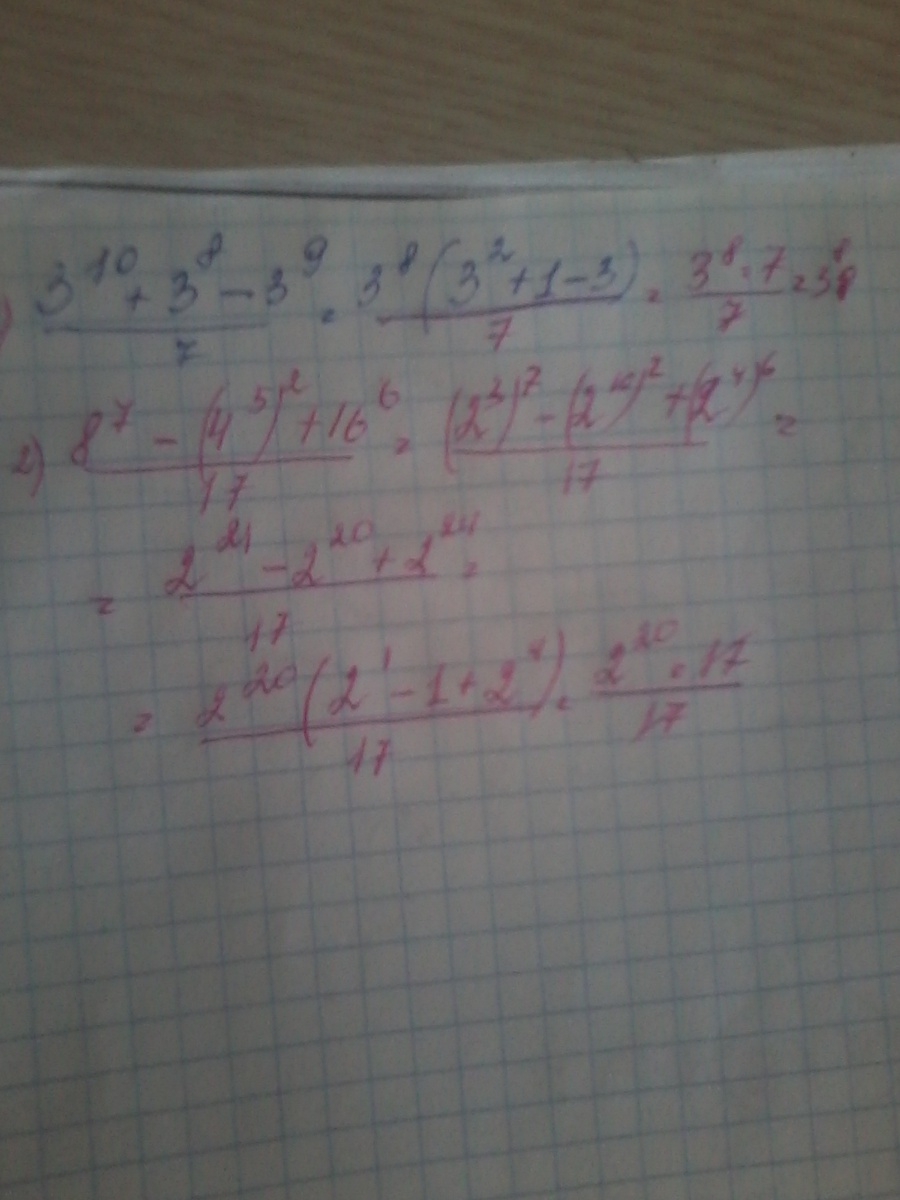 1) (3^10 + 3^8 - 3^9)/7 = 3^8(3^2 + 1 - 3)/7 = (3^8 · 7)/7 = 3^8
2) (8^7 - (4^5)^2 + 16^6)/17 = ((2^3)^7 - (2^10)^2 + (2^4)^6)/17 =
= (2^21 - 2^20 + 2^24)/17 =
= 2^20(2^1 - 1 + 2^4)/17 = (2^20 · 17)/17